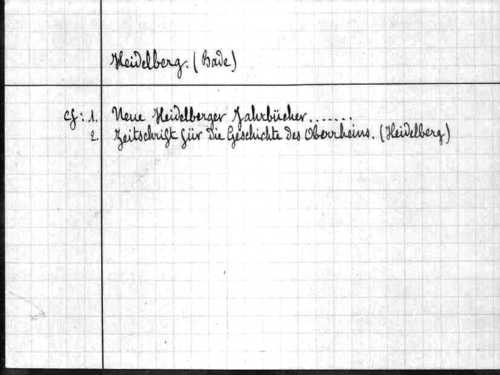 Heidelberg. (Bade)
cf: 1. Neue Heidelberger Jahrbücher.......
2. Zeitschrift für die Geschichte des Oberrheins. (Heidelberg)